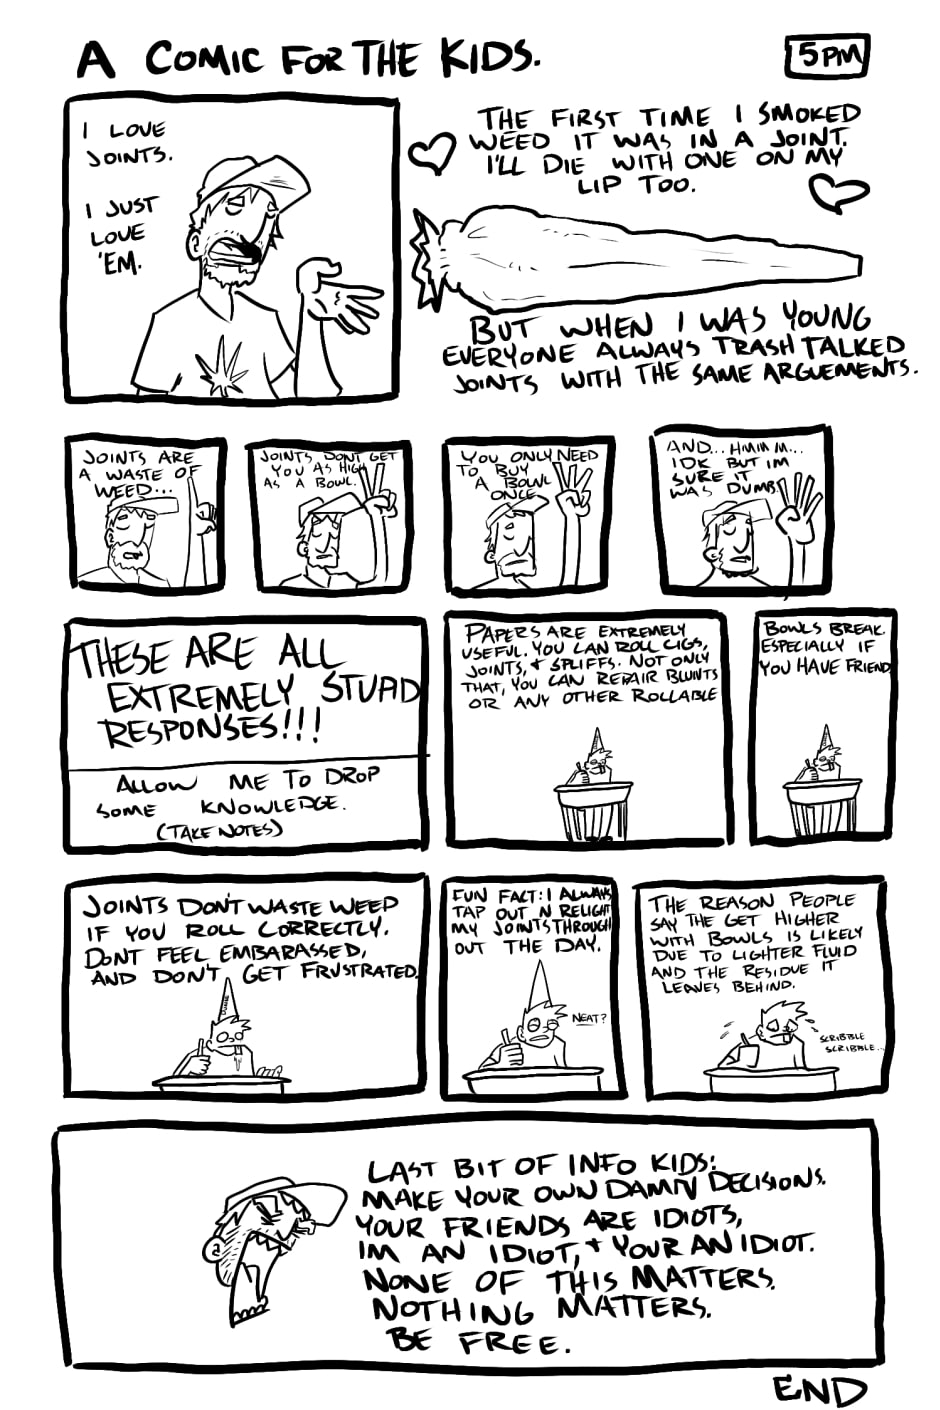 A COMIC FOR THE KIDS.
5PM
I LOVE
JOINTS.
I JUST
LOVE
'EM.
THE FIRST TIME I SMOKED
WEED IT WAS IN A JOINT.
I'LL DIE WITH ONE ON MY
LIP TOO.
BUT WHEN I WAS YOUNG
EVERYONE ALWAYS TRASH TALKED
JOINTS WITH THE SAME ARGUEMENTS.
JOINTS ARE
A WASTE OF
WEED...
JOINTS DON'T GET
YOU AS HIGH
AS A BOWL.
YOU ONLY NEED
TO BUY
A BOWL
ONCE
AND... HMMM...
IDK BUT IM
SURE IT
WAS DUMB.
THESE ARE ALL
EXTREMELY STUPID
RESPONSES!!!
ALLOW ME TO DROP
SOME KNOWLEDGE.
(TAKE NOTES)
PAPERS ARE EXTREMELY
USEFUL. YOU CAN ROLL CIGS,
JOINTS, + SPLIFFS. NOT ONLY
THAT, YOU CAN REPAIR BLUNTS
OR ANY OTHER ROLLABLE
BOWLS BREAK.
ESPECIALLY IF
YOU HAVE FRIEND
JOINTS DON'T WASTE WEED
IF YOU ROLL CORRECTLY.
DONT FEEL EMBARASSED,
AND DON'T GET FRUSTRATED.
DUNCE
FUN FACT: I ALWAYS
TAP OUT N RELIGHT
MY JOINTS THROUGH
OUT THE DAY.
NEAT?
THE REASON PEOPLE
SAY THE GET HIGHER
WITH BOWLS IS LIKELY
DUE TO LIGHTER FLUID
AND THE RESIDUE IT
LEAVES BEHIND.
SCRIBBLE
SCRIBBLE...
LAST BIT OF INFO KIDS:
MAKE YOUR OWN DAMN DECISIONS.
YOUR FRIENDS ARE IDIOTS,
IM AN IDIOT, + YOUR AN IDIOT.
NONE OF THIS MATTERS.
NOTHING MATTERS.
BE FREE.
END